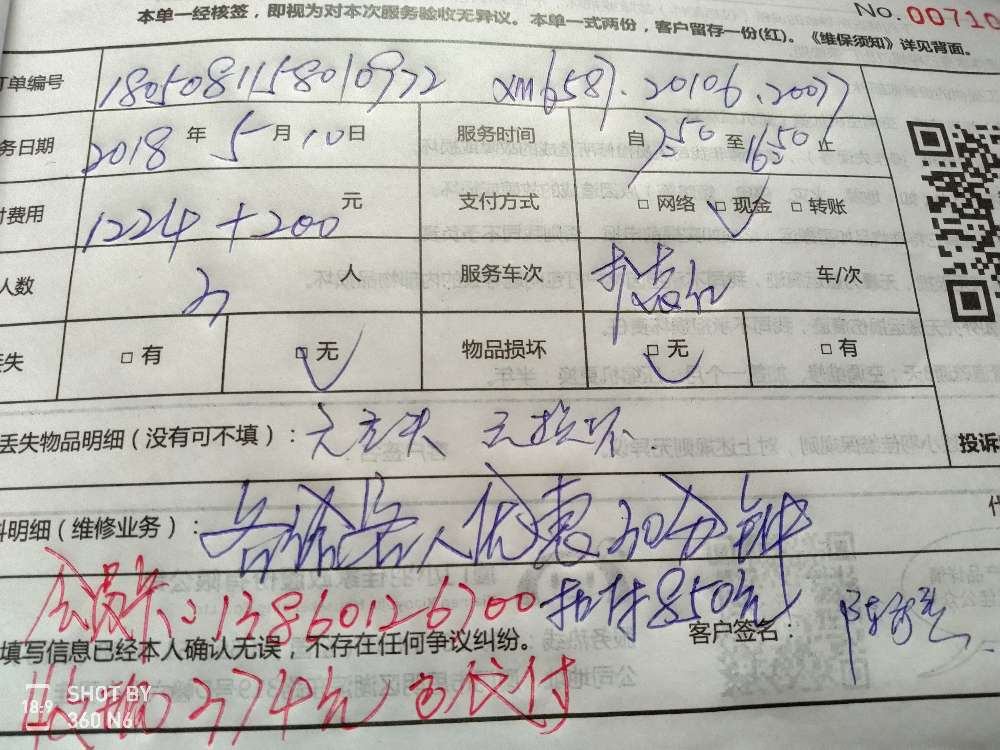 本单一经核签，即视为对本次服务验收无异议。本单一式两份，客户留存一份(红)。《维保须知》详见背面。
No. 00710
订单编号 1805081158010972 XM6587.20106.20077
务日期 2018 年 5 月 10 日 服务时间 自 750 至 1650 止
付费用 1224+200 元 支付方式 □ 网络 □ 现金 □ 转账
人数 3 人 服务车次 车/次
丢失 □ 有 □ 无 物品损坏 □ 无 □ 有
丢失物品明细（没有可不填）：无丢失 无损坏
投诉
料明细（维修业务）： 人优惠30分钟
会员卡：13860126700 扣卡850元
客户签名：
填写信息已经本人确认无误，不存在任何争议纠纷。
374元 已交付
SHOT BY
18:9
360 N6